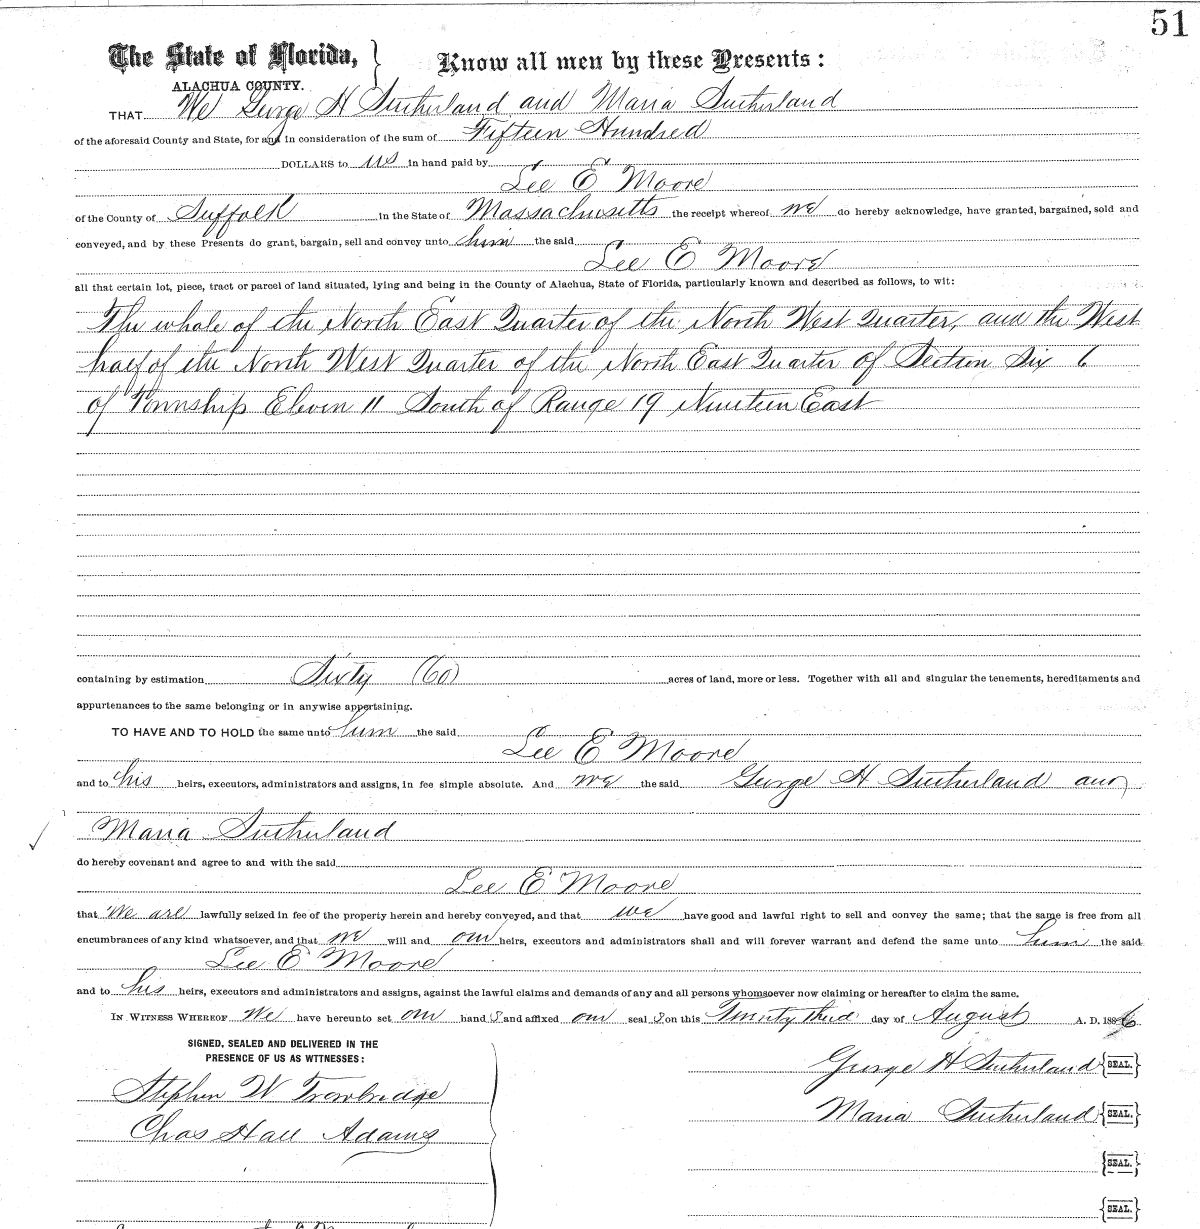 51
The State of Florida, } Know all men by these Presents:
ALACHUA COUNTY.
THAT We George H Sutherland and Maria Sutherland
of the aforesaid County and State, for and in consideration of the sum of Fifteen Hundred
DOLLARS to us in hand paid by
Lee E Moore
of the County of Suffolk in the State of Massachusetts the receipt whereof we do hereby acknowledge, have granted, bargained, sold and
conveyed, and by these Presents do grant, bargain, sell and convey unto him the said
Lee E Moore
all that certain lot, piece, tract or parcel of land situated, lying and being in the County of Alachua, State of Florida, particularly known and described as follows, to wit:
The whole of the North East Quarter of the North West Quarter, and the West
half of the North West Quarter of the North East Quarter of Section Six 6
of Township Eleven 11 South of Range 19 Nineteen East
containing by estimation Sixty (60) acres of land, more or less. Together with all and singular the tenements, hereditaments and
appurtenances to the same belonging or in anywise appertaining.
TO HAVE AND TO HOLD the same unto him the said
Lee E Moore
and to his heirs, executors, administrators and assigns, in fee simple absolute. And we the said George H Sutherland and
Maria Sutherland
do hereby covenant and agree to and with the said
Lee E Moore
that We are lawfully seized in fee of the property herein and hereby conveyed, and that we have good and lawful right to sell and convey the same; that the same is free from all
encumbrances of any kind whatsoever, and that we will and our heirs, executors and administrators shall and will forever warrant and defend the same unto him the said
Lee E Moore
and to his heirs, executors and administrators and assigns, against the lawful claims and demands of any and all persons whomsoever now claiming or hereafter to claim the same.
IN WITNESS WHEREOF We have hereunto set our hand S and affixed our seal S on this Twenty third day of August A. D. 1886
SIGNED, SEALED AND DELIVERED IN THE
PRESENCE OF US AS WITNESSES:
George H Sutherland {SEAL.}
Stephen W Trowbridge
Maria Sutherland {SEAL.}
Chas Hall Adams
{SEAL.}
{SEAL.}